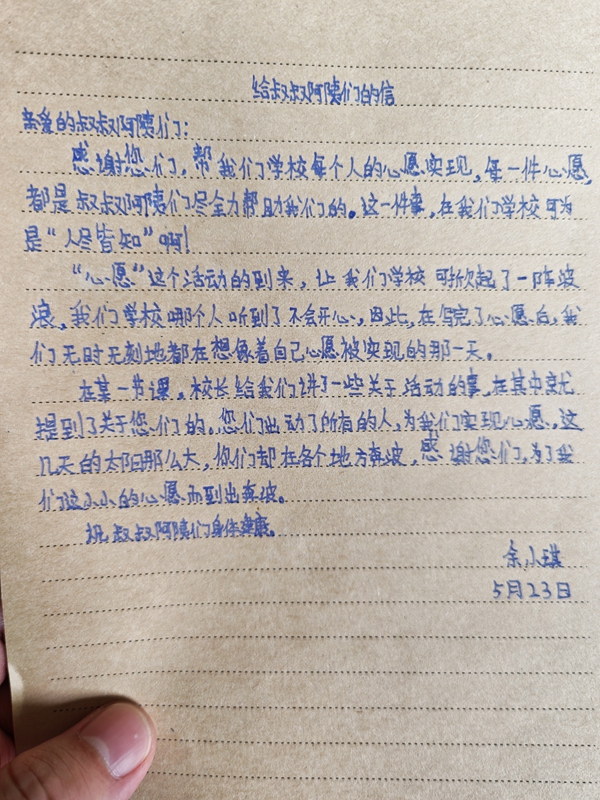 给叔叔阿姨们的信
亲爱的叔叔阿姨们:
感谢您们,帮我们学校每个人的心愿实现,每一件心愿,
都是叔叔阿姨们尽全力帮助我们的。这一件事,在我们学校可为
是“人尽皆知”啊!
“心愿”这个活动的到来,让我们学校可掀起了一阵波
浪,我们学校哪个人听到了不会开心,因此,在写完了心愿后,我
们无时无刻地都在想像着自己心愿被实现的那一天。
在某一节课,校长给我们讲了一些关于活动的事,在其中就
提到了关于您们的,您们出动了所有的人,为我们实现心愿,这
几天的太阳那么大,你们却在各个地方奔波,感谢您们,为了我
们这小小的心愿而到出奔波。
祝叔叔阿姨们身体健康。
余小琪
5月23日